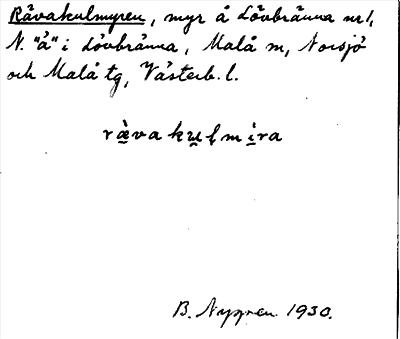 Rävakulmyren, myr å Lövbränna nr 1,
N. "å" i Lövbränna, Malå sn, Norsjö
och Malå tg, Västerb. l.
rä̀vakulmira
B. Nygren 1930.